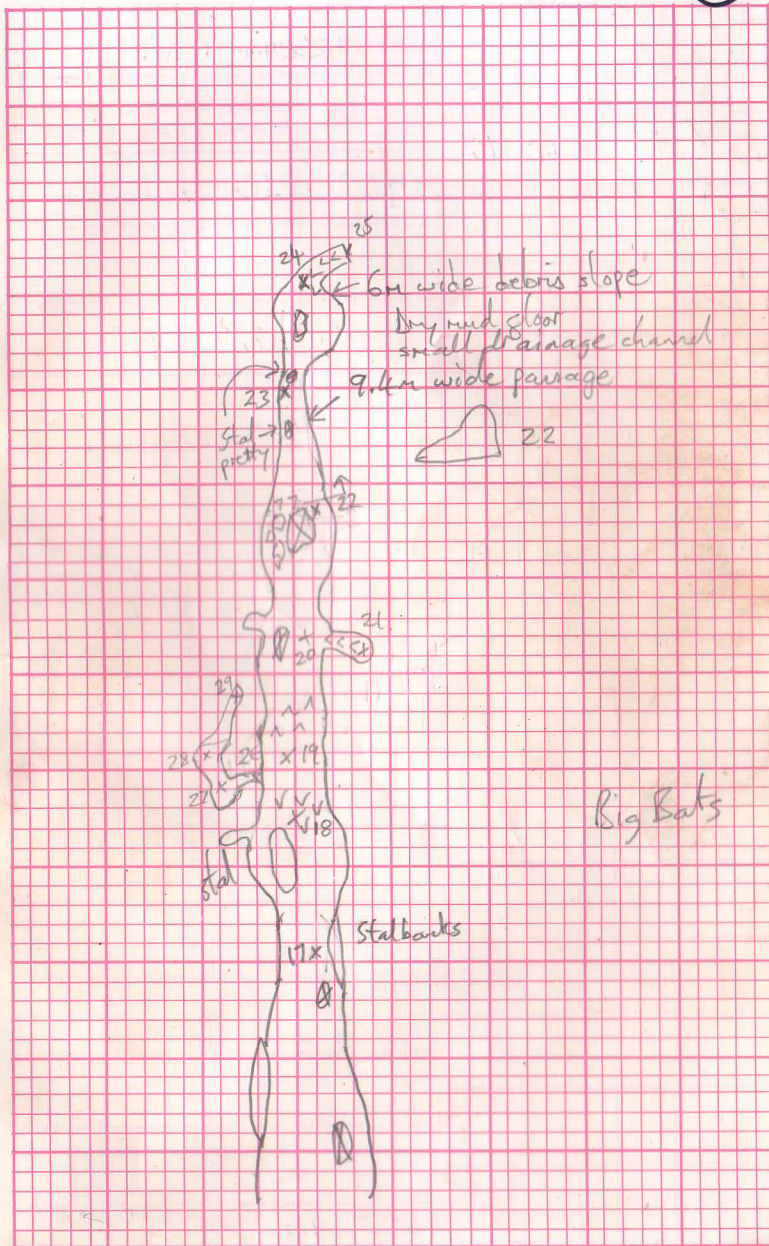 25
24
6m wide debris slope
Dry mud floor
small drainage channel
9.4m wide passage
23
Stal
pretty
22
22
21
20
29
28
26
19
27
18
Big Bats
Stal
Stalbanks
17